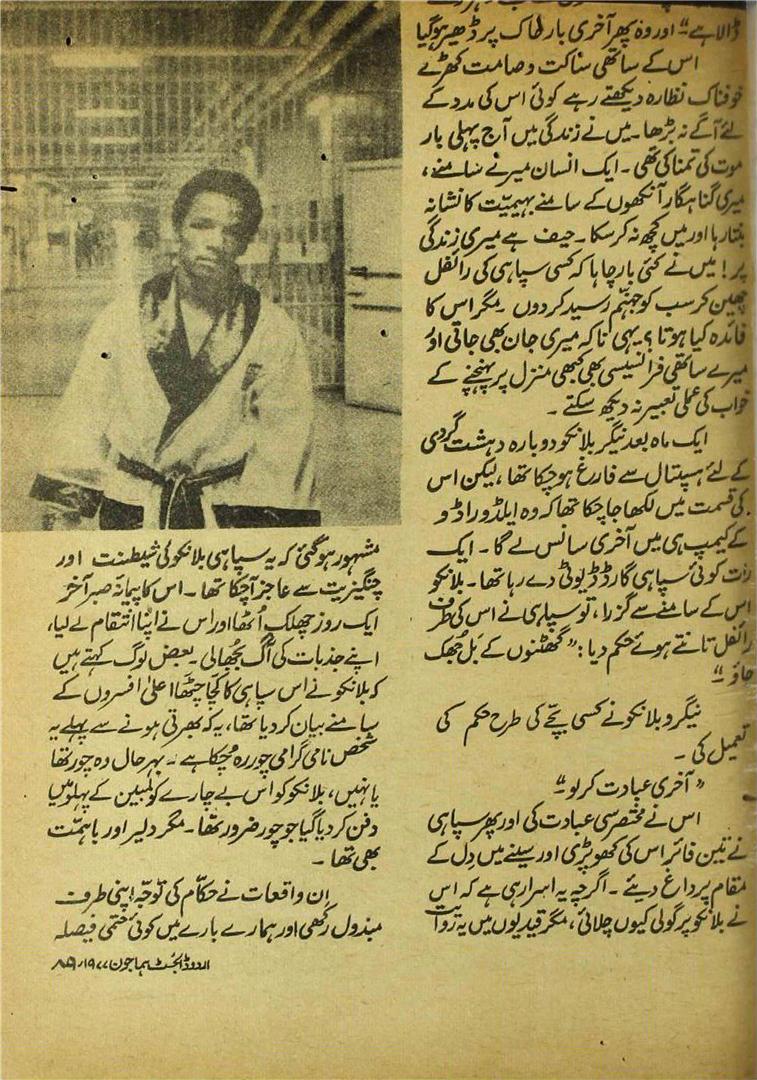 ڈالا ہے“ اور وہ پھر آخری بار خاک پر ڈھیر ہوگیا
اس کے ساتھی ساکت و صامت کھڑے
خوفناک نظارہ دیکھتے رہے کوئی اس کی مدد کے
لئے آگے نہ بڑھا۔ میں نے زندگی میں آج پہلی بار
موت کی تمنا کی تھی۔ ایک انسان میرے سامنے،
میری گناہگار آنکھوں کے سامنے بہیمیّت کا نشانہ
بنتا رہا اور میں کچھ نہ کر سکا۔ حیف ہے میری زندگی
پر! میں نے کئی بار چاہا کہ کسی سپاہی کی رائفل
چھین کر سب کو جہنّم رسید کردوں۔ مگر اس کا
فائدہ کیا ہوتا؟ یہی نا کہ میری جان بھی جاتی اور
میرے ساتھی فرانسیسی بھی کبھی منزل پر پہنچنے کے
خواب کی عملی تعبیر نہ دیکھ سکتے۔
ایک ماہ بعد نیگر بلانکو دوبارہ دہشت گردی
کے لئے ہسپتال سے فارغ ہو چکا تھا، لیکن اس
کی قسمت میں لکھا جا چکا تھا کہ وہ ایلڈوراڈو
کے کیمپ ہی میں آخری سانس لے گا۔ ایک
رات کوئی سپاہی گارڈ ڈیوٹی دے رہا تھا۔ بلانکو
اس کے سامنے سے گزرا، تو سپاہی نے اس کی طرف
رائفل تانتے ہوئے حکم دیا: ”گھٹنوں کے بَل جُھک
جاؤ“
نیگرو بلانکو نے کسی بچّے کی طرح حکم کی
تعمیل کی۔
”آخری عبادت کر لو“
اس نے مختصر سی عبادت کی اور پھر سپاہی
نے تین فائر اس کی کھوپڑی اور سینے میں دِل کے
مقام پر داغ دیئے۔ اگرچہ یہ اسرار ہی ہے کہ اس
نے بلانکو پر گولی کیوں چلائی، مگر قیدیوں میں یہ روایت
مشہور ہوگئی کہ یہ سپاہی بلانکو کی شیطنت اور
چنگیزیت سے عاجز آچکا تھا۔ اس کا پیمانۂ صبر آخر
ایک روز چھلک اُٹھا اور اس نے اپنا انتقام لے لیا،
اپنے جذبات کی آگ بُجھالی۔ بعض لوگ کہتے ہیں
کہ بلانکو نے اس سپاہی کا کچّا چٹھا اعلیٰ افسروں کے
سامنے بیان کر دیا تھا، یہ کہ بھرتی ہونے سے پہلے یہ
شخص نامی گرامی چور رہ چُکا ہے۔ بہرحال وہ چور تھا
یا نہیں، بلانکو کو اس بے چارے کولمبین کے پہلو میں
دفن کر دیا گیا جو چور ضرور تھا۔ مگر دلیر اور باہمّت
بھی تھا۔
ان واقعات نے حکّام کی توجّہ اپنی طرف
مبذول رکھی اور ہمارے بارے میں کوئی حتمی فیصلہ
اردو ڈائجسٹ ہما جون ۱۹۷۷ء ۸۹